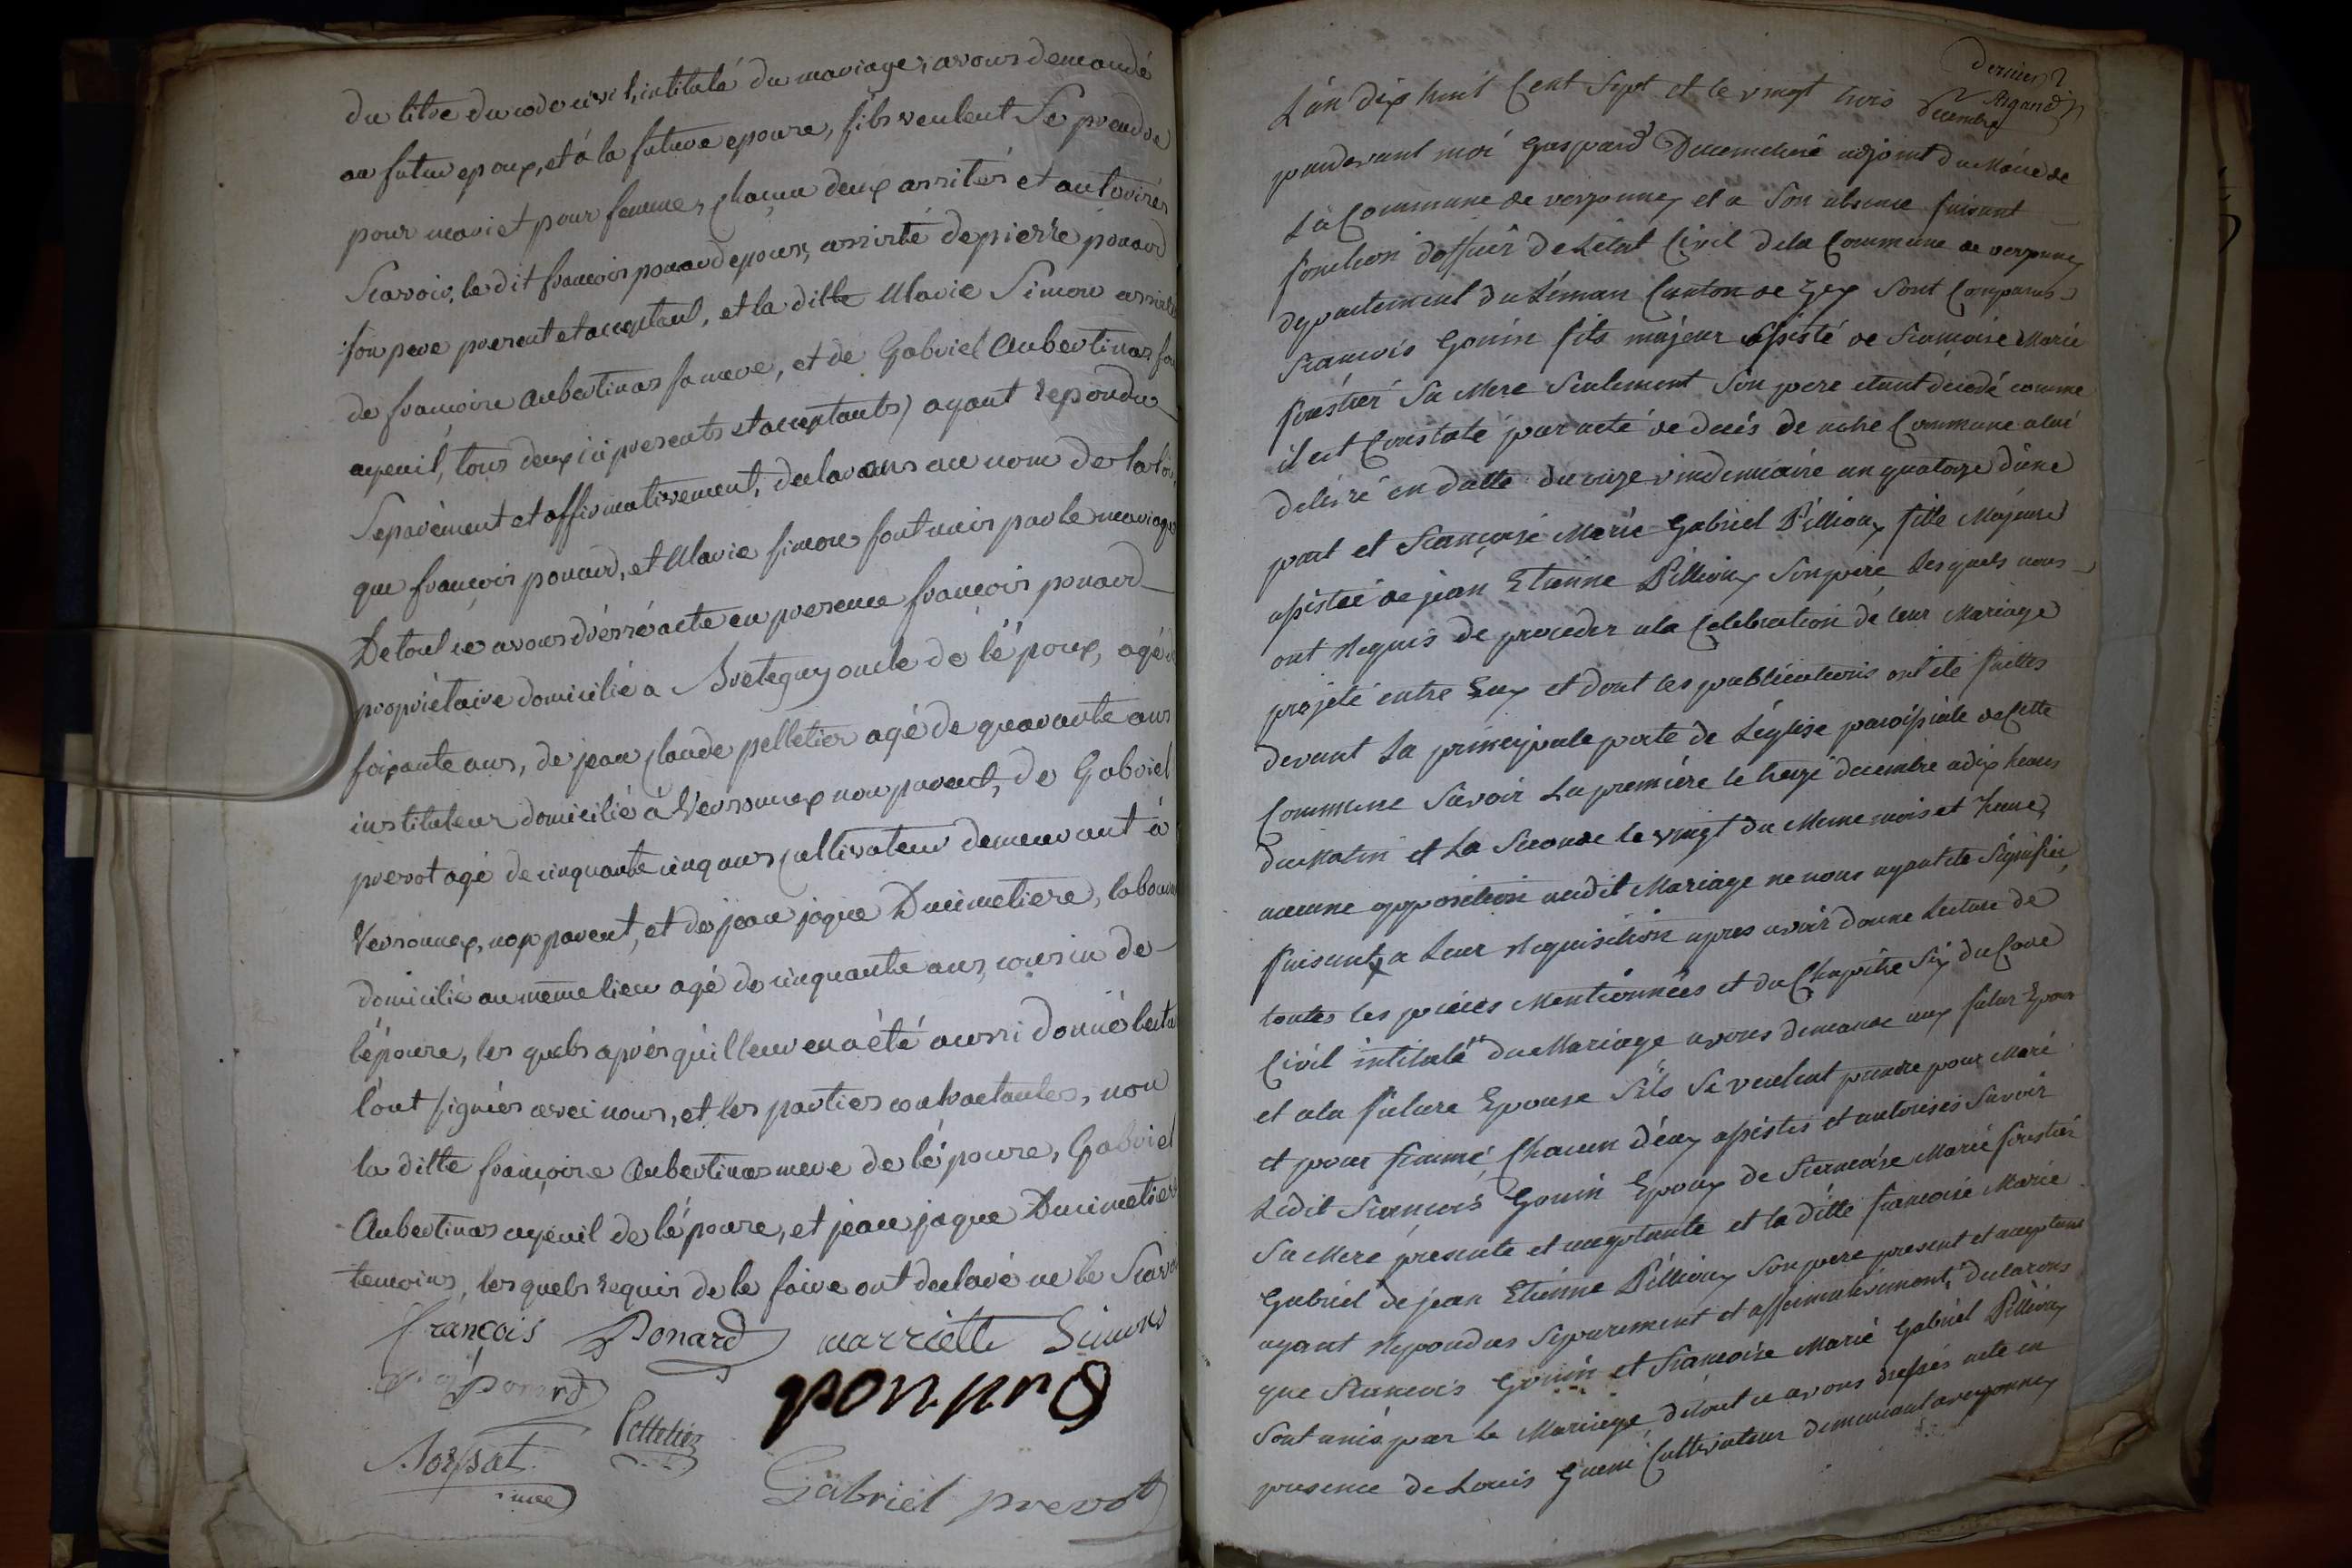 du titre du code civil, intitulé du mariage, avons demandé
au futur epoux, et à la future epouse, s'ils veulent Se prendre
pour mari et pour femme, chacun deux assistés et autorisés
Scavoir, le dit françois ponard epoux, assisté de pierre ponard
son pere present et acceptant, et la ditte Marie Simon assistée
de francoise Aubertinas sa mere, et de Gabriel Aubertinas son
ayeuil, tous deux ici presents et acceptants) ayant repondu
Separément et affirmativement, declarons au nom de la loi,
que françois ponard, et Marie simon sont unis par le mariage
De tout ce avons dressé acte en presence françois ponard
propriétaire domicilié a Bretegny oncle de lépoux, agé de
soixante ans, de jean claude pelletier agé de quarante ans
instituteur domicilié à Versonnex non parent, de Gabriel
prevot agé de cinquante cinq ans cultivateur demeurant à
Versonnex, non parent, et de jean jaque Ducimetiere, laboureur
domicilié au même lieu agé de cinquante ans, cousin de
lépouse, les quels après qu'il leur en a été aussi donné lecture
l'ont signés avec nous, et les parties contractantes, non
la ditte françoise Aubertinas mere de lépouse, Gabriel
Aubertinas ayeuil de lépouse, et jean jaque Ducimetiere
temoins, les quels requis de le faire ont declaré ne le Scavoir
françois Ponard marriette Simon
ponard
ponard
Pelletier
Gabriel prevot
dernier
L'an dix huit Cent Sept et le vingt trois Decembre
pardevant moi Gaspard Ducimetiere adjoint du Maire de
La Commune de versonnex et a Son absence faisant
fonction d'officier de Létat Civil de la Commune de versonnex
departement du Léman Canton de Gex Sont Comparus
François Gonin fils majeur assisté de Francoise Marie
forestier Sa Mere Seulement Son pere etant decedé comme
il est Constaté par acte de décés de notre Commune a lui
délivré en datte du onze vindemiaire an quatorze d'une
part et Françoise Marie Gabriel Pillioux fille Majeure
assistée de jean Etienne Pillioux Son pere, Lesquels nous
ont Requis de proceder a la Celebration de leur Mariage
projeté entre Eux et dont les publications ont été faittes
devant La principale porte de L'église paroissiale de Cette
Commune Savoir La première le treize decembre a dix heures
du Matin et La Seconde le vingt du Meme mois et heure,
aucune opposition audit Mariage ne nous ayant été Signifiée,
faisant a Leur Requisition apres avoir donne Lecture de
toutes les pieces Mentionnées et du Chapitre Six du Code
Civil intitulé du Mariage avons demandé aux futur Epoux
et a la future Epouse S'ils Se veulent prendre pour Mari
et pour femme, Chacun d'eux assistés et autorisés Savoir
Ledit François Gonin Epoux de Francoise Marie forestier
Sa Mere presente et acceptante et la ditte francoise Marie
Gabriel de jean Etienne Pillioux Son pere present et acceptant
ayant Repondus Separement et affirmativement, declarons
que François Gonin et Françoise Marie Gabriel Pillioux
Sont unis par le Mariage, de tout ce avons dressés acte en
presence de Louis Cultivateur demeurant a versonnex